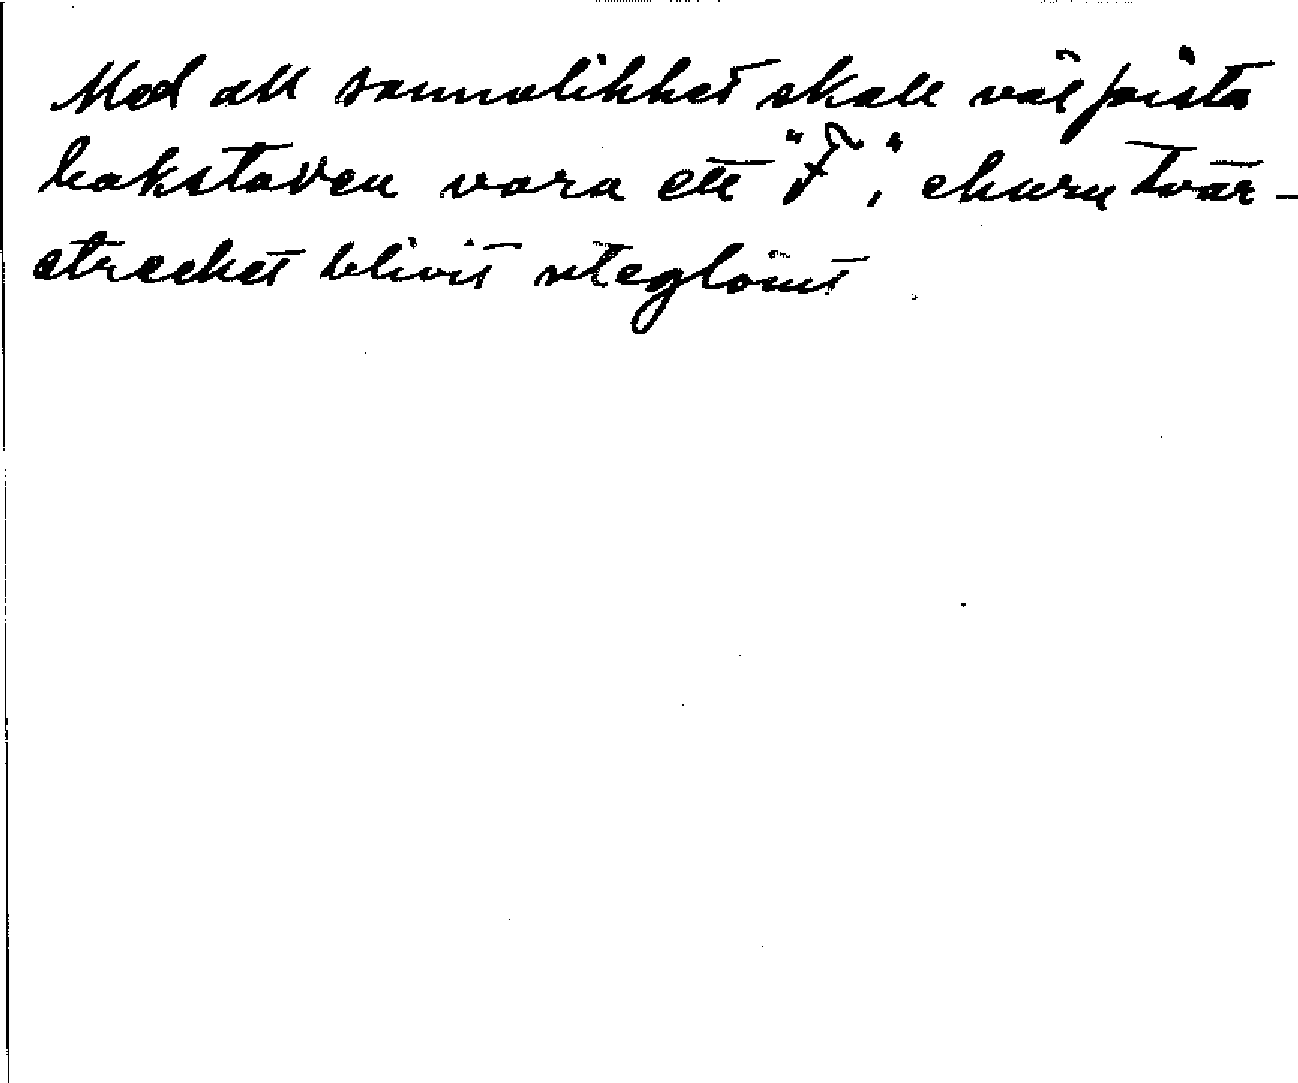 Med all sannolikhet skall väl första
bokstaven vara ett "F", ehuru tvär-
strecket blivit uteglömt